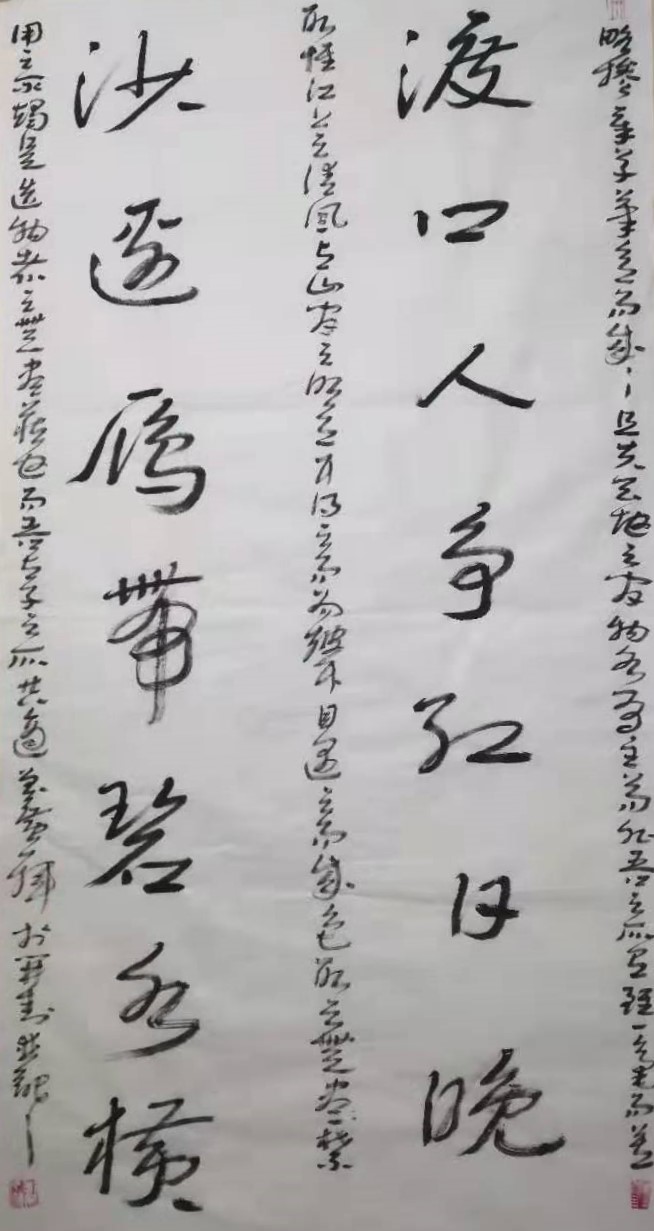 略摻章草筆意而成、且夫天地之间物各有主苟非吾之所有雖一毫而莫
渡口人争红日晚
取惟江上之清風与山间之明月耳得之而为聲目遇之而成色取之無尽禁
沙邊雁帶碧水横
用之不竭是造物者之無尽藏也而吾与子之所共適